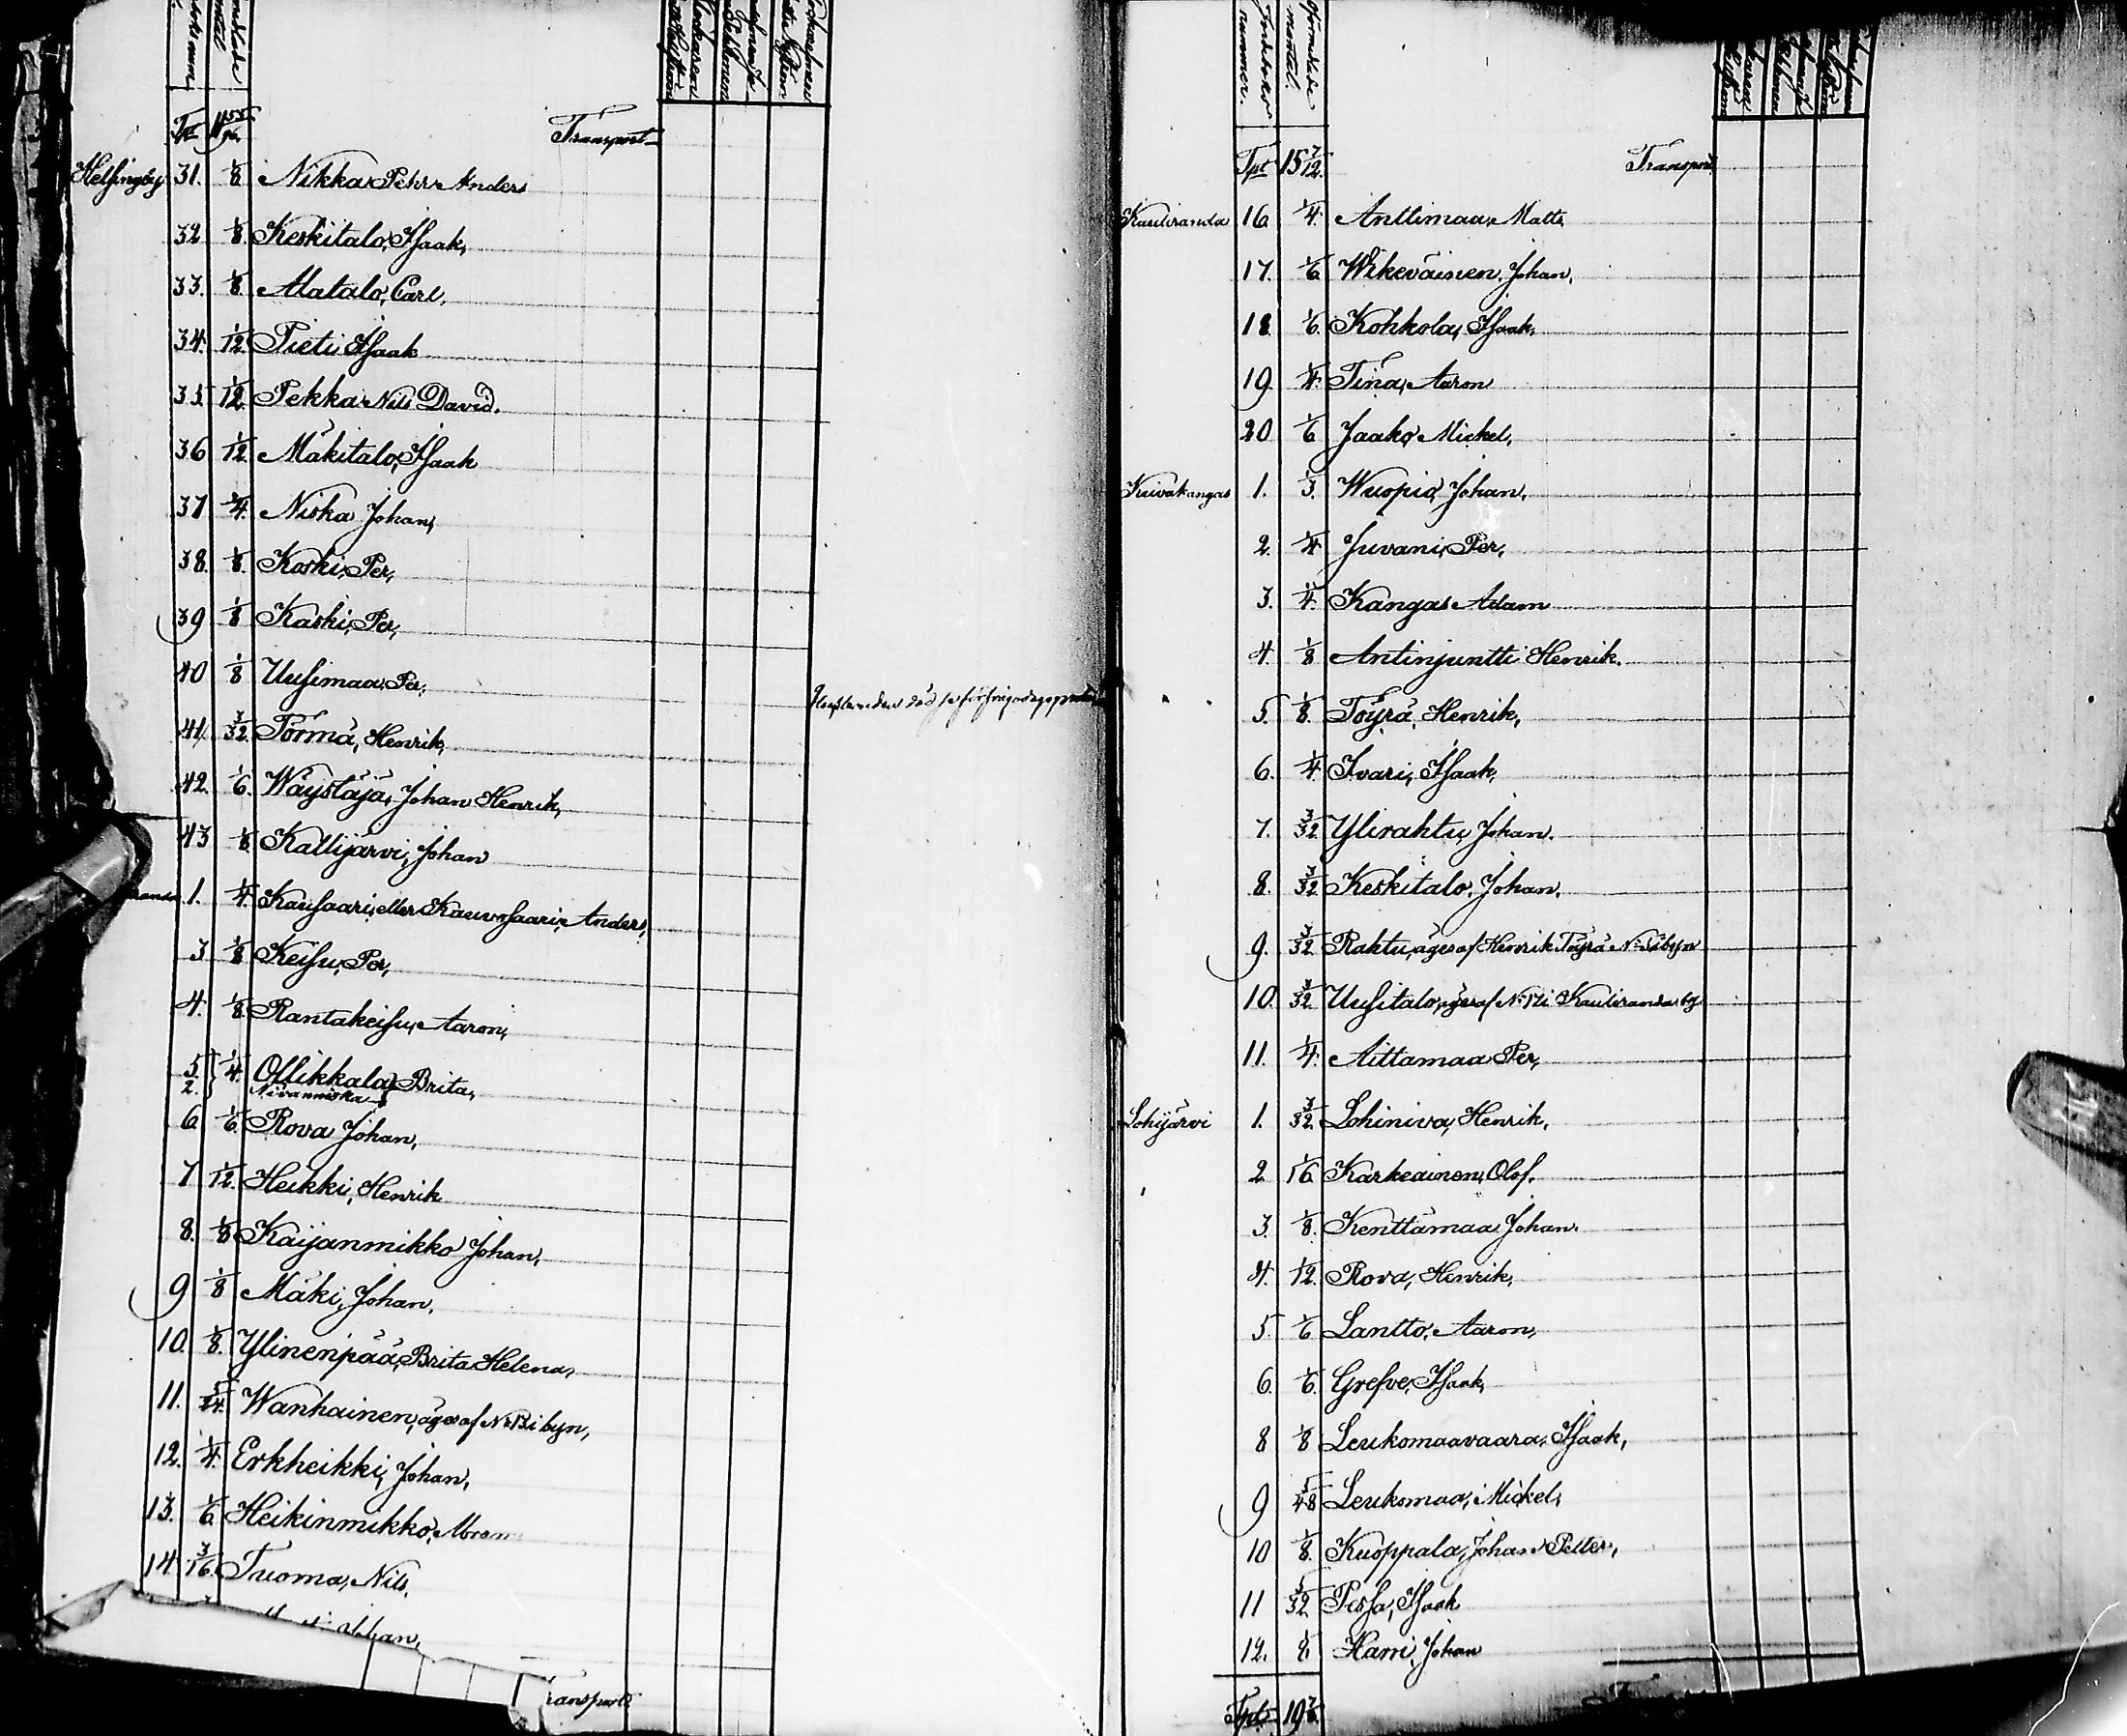 Transport
Helsingby 31. 1/8 Nikka Pehr Anders
32 1/8 Keskitalo, Isaak,
33. 1/8 Alatalo, Carl,
34. 1/12 Pieti Isaak
35 1/12 Pekka Nils David.
36 1/12 Mäkitalo, Isaak
37 1/4 Niska Johan,
38. 1/8 Koski, Per,
39 1/8 Kaski, Per,
40 1/8 Uusimaa, Per,
41 3/32 Törmä, Henrik,
42. 1/6 Wäystäjä, Johan Henrik,
43 1/8 Kallijärvi, Johan
randa 1. 1/4 Kausaari, eller Kauvosaari, Anders,
3 1/8 Keisu, Per,
4. 1/8 Rantakeisu, Aaron,
5. 2. } 1/4 Ollikkala, Brita,
Nivanniska
6 1/6 Rova Johan,
7 1/12 Heikki, Henrik
8. 1/8 Kaijanmikko Johan,
9 1/8 Mäki, Johan,
10. 1/8 Ylinenpää, Brita Helena,
11. 5/24 Wanhainen, äges af No 13 i byn,
12. 1/4 Erkheikki, Johan,
13. 1/6 Heikinmikko, Abram
14 3/16 Tuoma, Nils,
Johan,
ransport
Förmedlade mantal.
Jordeboks nummer.
Tpt 15 7/12. Transport
Kauliranda 16 1/4 Anttimaa, Matts
17. 1/6 Wikeväinen, Johan,
18 1/6 Kohkola, Isaak,
19 1/4 Tina, Aaron
20 1/6 Jaako Mickel,
Kuivakangas 1. 1/3 Wuopio, Johan,
2. 1/4 Juvani, Per,
3. 1/4 Kangas Adam
4. 1/8 Antinjuntti Henrik.
5. 1/8 Töyrä Henrik,
6. 1/4 Ivari, Isaak,
7. 3/32 Ylirahtu, Johan.
8. 3/32 Keskitalo, Johan.
9. 3/32 Rahtu, äges af Henrik Töyrä No 5 i byn
10. 3/32 Uusitalo, äges af No 17 i Kauliranda by
11. 1/4 Aittamaa Per,
Lohijärvi 1. 3/32 Lohiniva, Henrik,
2 1/16 Karkeainen, Olof.
3. 1/8 Kenttämaa, Johan.
4. 1/12 Rova, Henrik,
5. 1/6 Lantto, Aaron,
6. 1/6 Grefve, Isaak,
8 1/8 Leukomaavaara, Isaak,
9 5/48 Leukomaa, Mickel,
10 1/8 Kuoppala, Johan Petter,
11 5/32 Pessa, Isaak
12. 1/8 Harri, Johan
Tpt